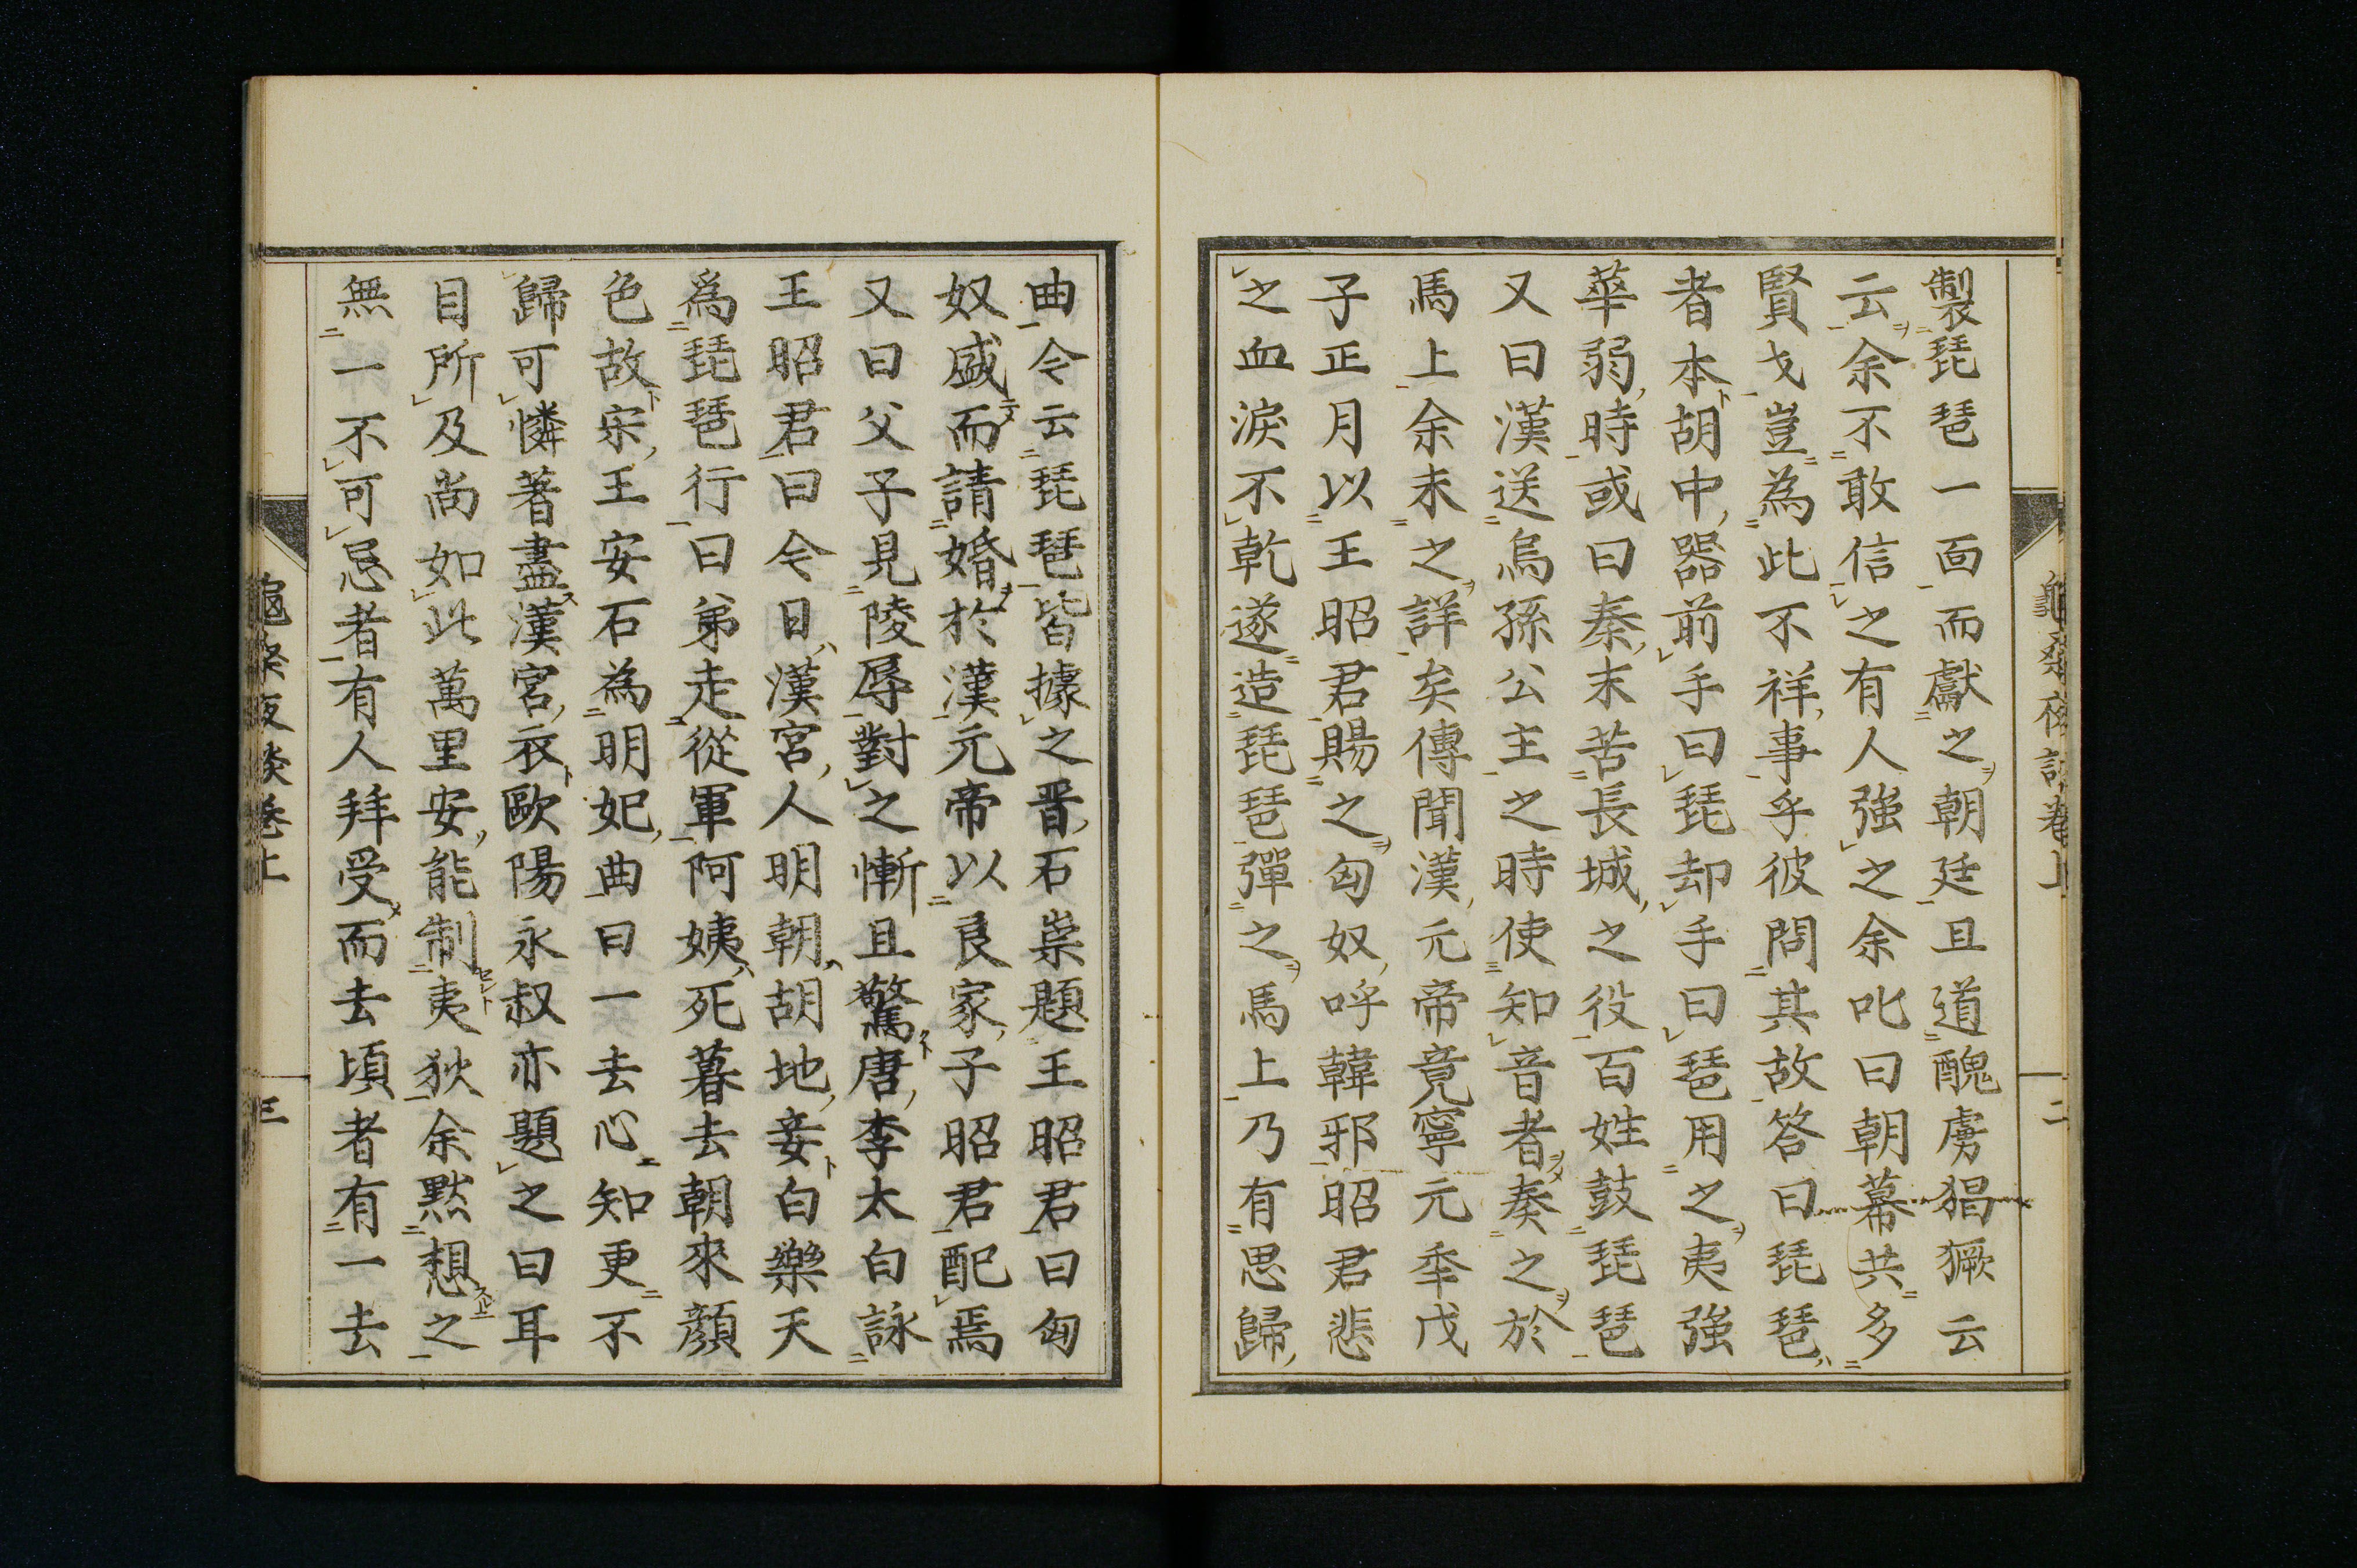 製琵琶一面而獻之朝廷且道醜虜猖獗云
云余不敢信之有人強之余叱曰朝幕共多
賢戈豈為此不祥事乎彼問其故答曰曰琵琶
者本胡中器前手曰琵却手曰琶用之夷強
華弱時或曰秦末苦長城之役百姓鼓琵琶
又曰漢送烏孫公主之時使知音者奏之於
馬上余末之詳矣傳聞漢元帝竟寧元季戊
子正月以王昭君賜之匈奴呼韓邪昭君悲
之血淚不乾遂造琵琶彈之馬上乃有思歸
曲令云琵琶皆據之晉石崇題王昭君曰匈
奴盛而請婚於漢元帝以良家子昭君配焉
又曰父子見陵辱對之慚且驚唐李太白詠
王昭君曰今日漢宮人明朝胡地妾白樂天
為琵琶行曰弟走從軍阿姨死暮去朝來顏
色故宋王安石為明妃曲曰一去心知更不
歸可憐著盡漢宮衣歐陽永叔亦題之曰耳
目所及尚如此萬里安能制夷狄余默想之
無一不可忌者有人拜受而去頃者有一去
卷上
二
卷上
三